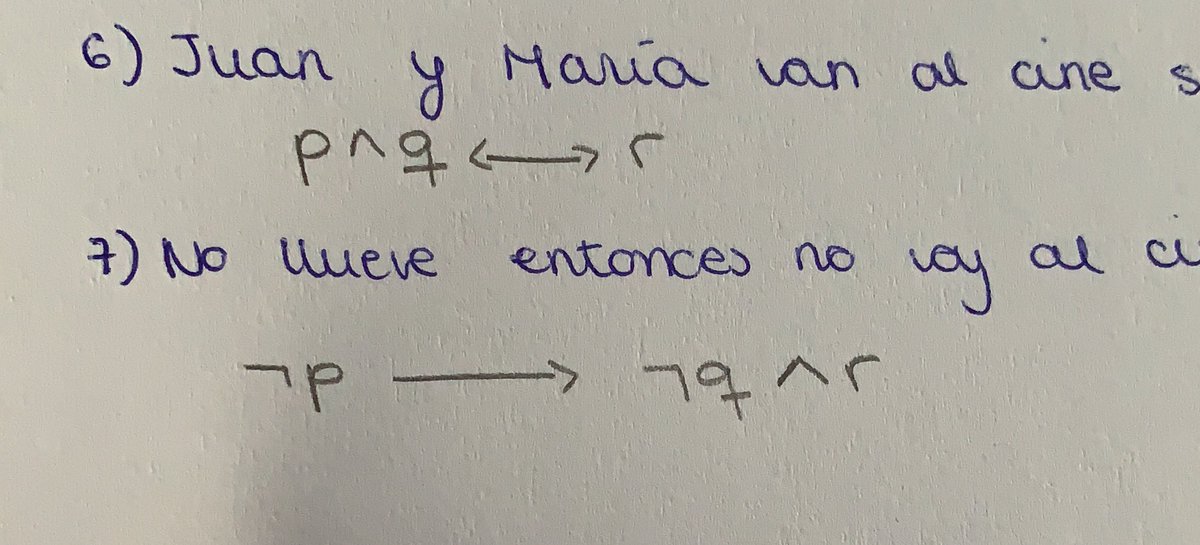 6) Juan y María van al cine s
p ∧ q ⟷ r
7) No llueve entonces no voy al ci
¬p ⟶ ¬q ∧ r